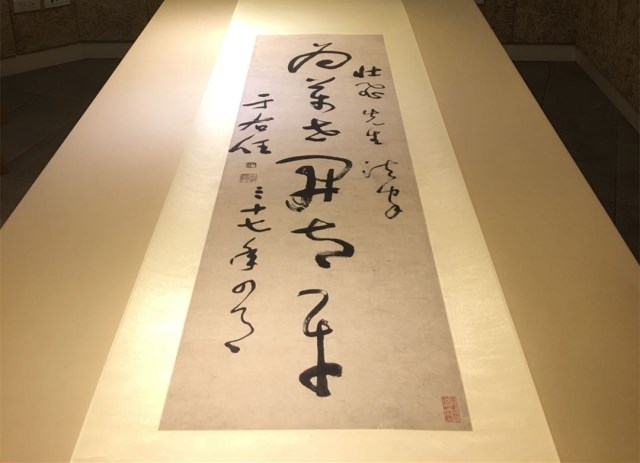 壯飛先生法家
為萬世開太平
于右任 三十七年四月